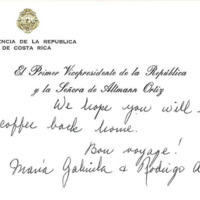 ENCIA DE LA REPUBLICA
DE COSTA RICA
El Primer Vicepresidente de la República
y la Señora de Altmann Ortiz
We hope you will
coffee back home.
Bon voyage!
María Gabriela & Rodrigo A